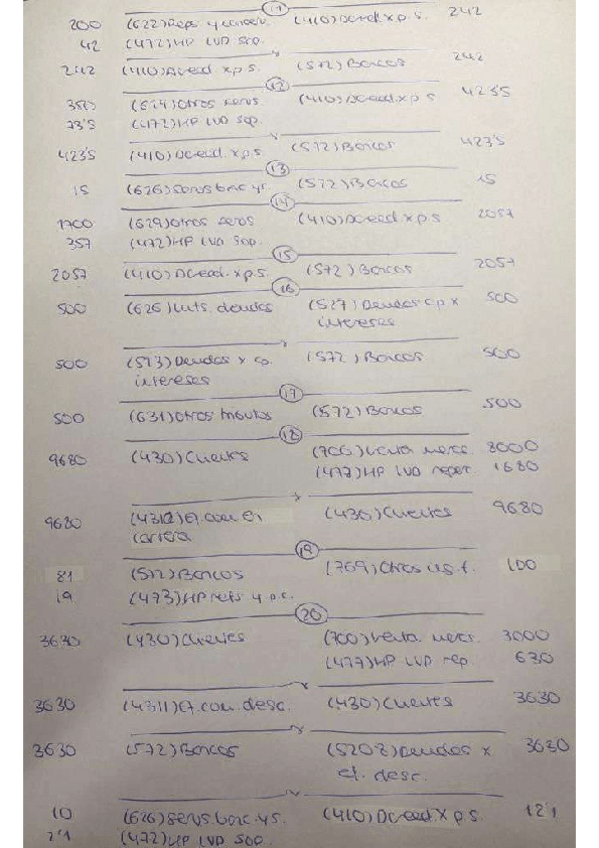 11
200 (622) Reps y conserv. (410) Acreed x p.s. 242
42 (472) HP IVA sop.
242 (410) Acreed x p.s. (572) Bancos 242
12
350 (629) Otros servs. (410) Acreed x p.s 423'5
73'5 (472) HP IVA sop.
423'5 (410) Acreed. x p.s (572) Bancos 423'5
13
15 (626) Servs banc y s. (572) Bancos 15
14
1700 (629) Otros servs (410) Acreed x p.s 2057
357 (472) HP IVA sop.
15
2057 (410) Acreed. x p.s. (572) Bancos 2057
16
500 (626) Ints. deudas (527) Deudas c.p x 500
intereses
500 (513) Deudas x cp. (572) Bancos 500
intereses
17
500 (631) Otros tributos (572) Bancos 500
18
9680 (430) Clientes (700) Venta merc. 8000
(477) HP IVA reper. 1680
9680 (4312) Ef. com en (430) Clientes 9680
cartera
19
81 (572) Bancos (769) Otros ing. f. 100
19 (473) HP rets y p.c.
20
3630 (430) Clientes (700) Venta merc. 3000
(477) HP IVA rep. 630
3630 (4311) Ef. com. desc. (430) Clientes 3630
3630 (572) Bancos (5208) Deudas x 3630
ef. desc.
10 (626) Servs banc. y s. (410) Acreed x p.s. 12'1
2'1 (472) HP IVA sop.